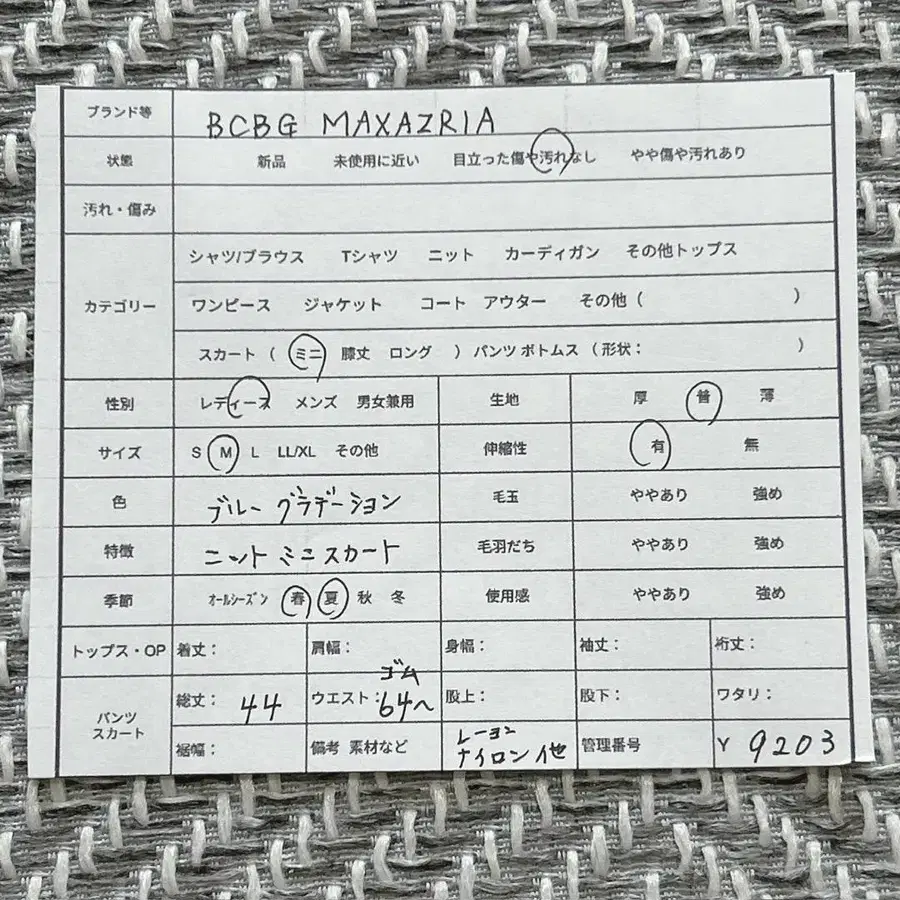 ブランド等 BCBG MAXAZRIA
状態 新品 未使用に近い 目立った傷や汚れなし やや傷や汚れあり
汚れ・傷み
カテゴリー
シャツ/ブラウス Tシャツ ニット カーディガン その他トップス
ワンピース ジャケット コート アウター その他 ( )
スカート ( ミニ 膝丈 ロング ) パンツ ボトムス ( 形状: )
性別 レディース メンズ 男女兼用 生地 厚 普 薄
サイズ S M L LL/XL その他 伸縮性 有 無
色 ブルー グラデーション 毛玉 ややあり 強め
特徴 ニット ミニスカート 毛羽だち ややあり 強め
季節 オールシーズン 春 夏 秋 冬 使用感 ややあり 強め
トップス・OP 着丈: 肩幅: 身幅: 袖丈: 裄丈:
パンツ
スカート
総丈: 44 ウエスト: ゴム 64〜 股上: 股下: ワタリ:
裾幅: 備考 素材など レーヨン
ナイロン 他 管理番号 Y 9203